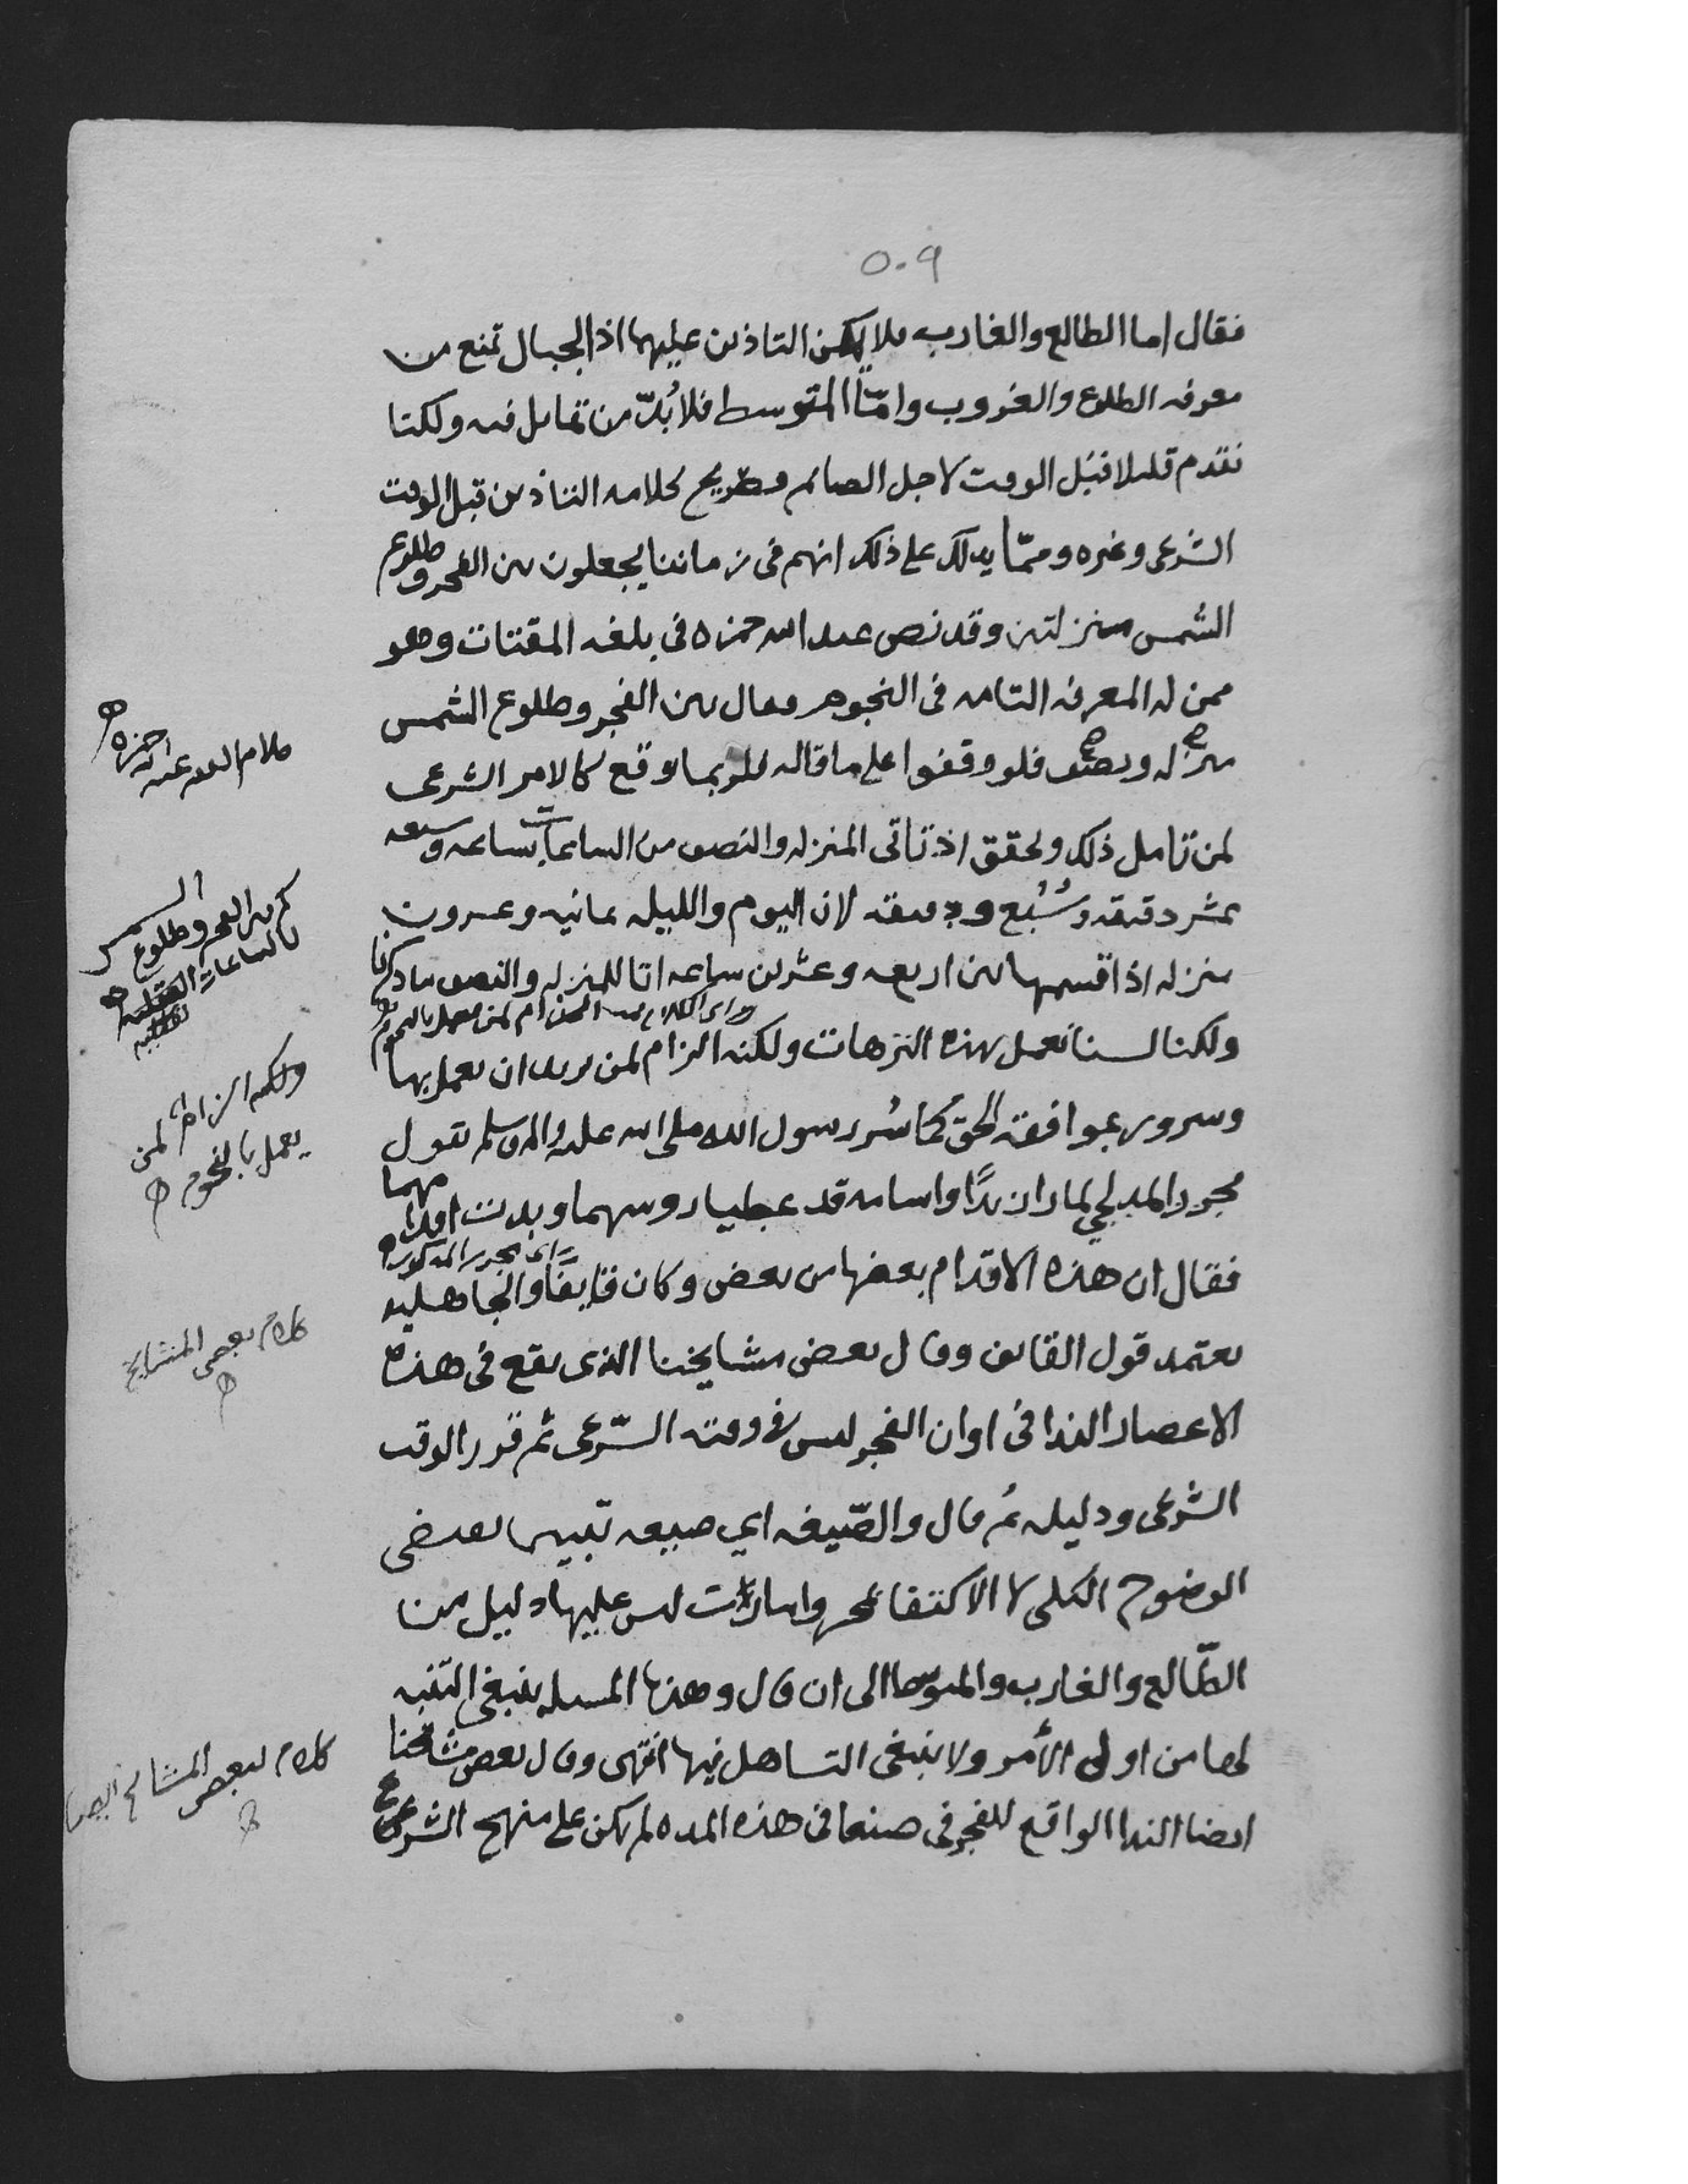 ٥٠٩
فقال اما الطالع والغارب فلا يمكن التاذين عليهما اذ الجبال تمنع من
معرفه الطلوع والغروب وامّا المتوسط فلا بُدّ من تمايل فيه ولكنا
نتقدم قليلا قبل الوقت لاجل الصايم وصريح كلامه التاذين قبل الوقت
الشرعى وغيره وممّا يدلك على ذلك انهم فى زماننا يجعلون بين الفجر وطلوع
الشمس منزلتين وقد نص عبد الله حمزه فى بلغه المقتات وهو
ممن له المعرفه التامه فى النجوم وقال بين الفجر وطلوع الشمس
منزله ونصف فلو وقفوا على ما قاله لربما وقع كالامر الشرعى
لمن تامل ذلك وتحقق اذ تاتى المنزله والنصف من الساعات بساعه وسبعه
عشر دقيقه وسُبُع دقيقه لان اليوم والليله ثمانيه وعشرون
منزله اذا قسمها بين اربعه وعشرين ساعه اتا للمنزله والنصف ما ذكرنا
ولكنا لسنا نعمل بهذه النزهات ولكنه الزام لمن يريد ان يعمل بها
وسرور بموافقه الحق كما سُر رسول الله صلى الله عليه واله وسلم بقول
مجزز المدلجي لما راى زيدًا واسامه قد غطيا روسهما وبدت اقدامهما
فقال ان هذه الاقدام بعضها من بعض وكان قايفًا والجاهليه
اى مجزز المذكور
يعتمد قول القايف وقال بعض مشايخنا الذى يقع فى هذه
الاعصار الندا فى اوان الفجر ليس فى وقته الشّرعى ثم قرر الوقت
الشرعى ودليله ثم قال والصّيغه اي صيغه تبين تقتضى
الوضوح الكلى لا الاكتفا وامارات ليس عليها دليل من
الطّالع والغارب والمتوسط الى ان قال وهذه المسله ينبغى التنبه
لها من اولى الأمر ولا ينبغى التساهل فيها انتهى وقال بعض مشايخنا
ايضا الندا الواقع للفجر فى صنعا فى هذه المده لم يكن على منهج الشرع
كلام العلامه عبد الله حمزه
كم بين الفجر وطلوع الشمس
بالساعات الفلكيه
ولكنه الزام لمن
يعمل بالنجوم
كلام بعض المشايخ
كلام لبعض المشايخ ايضا